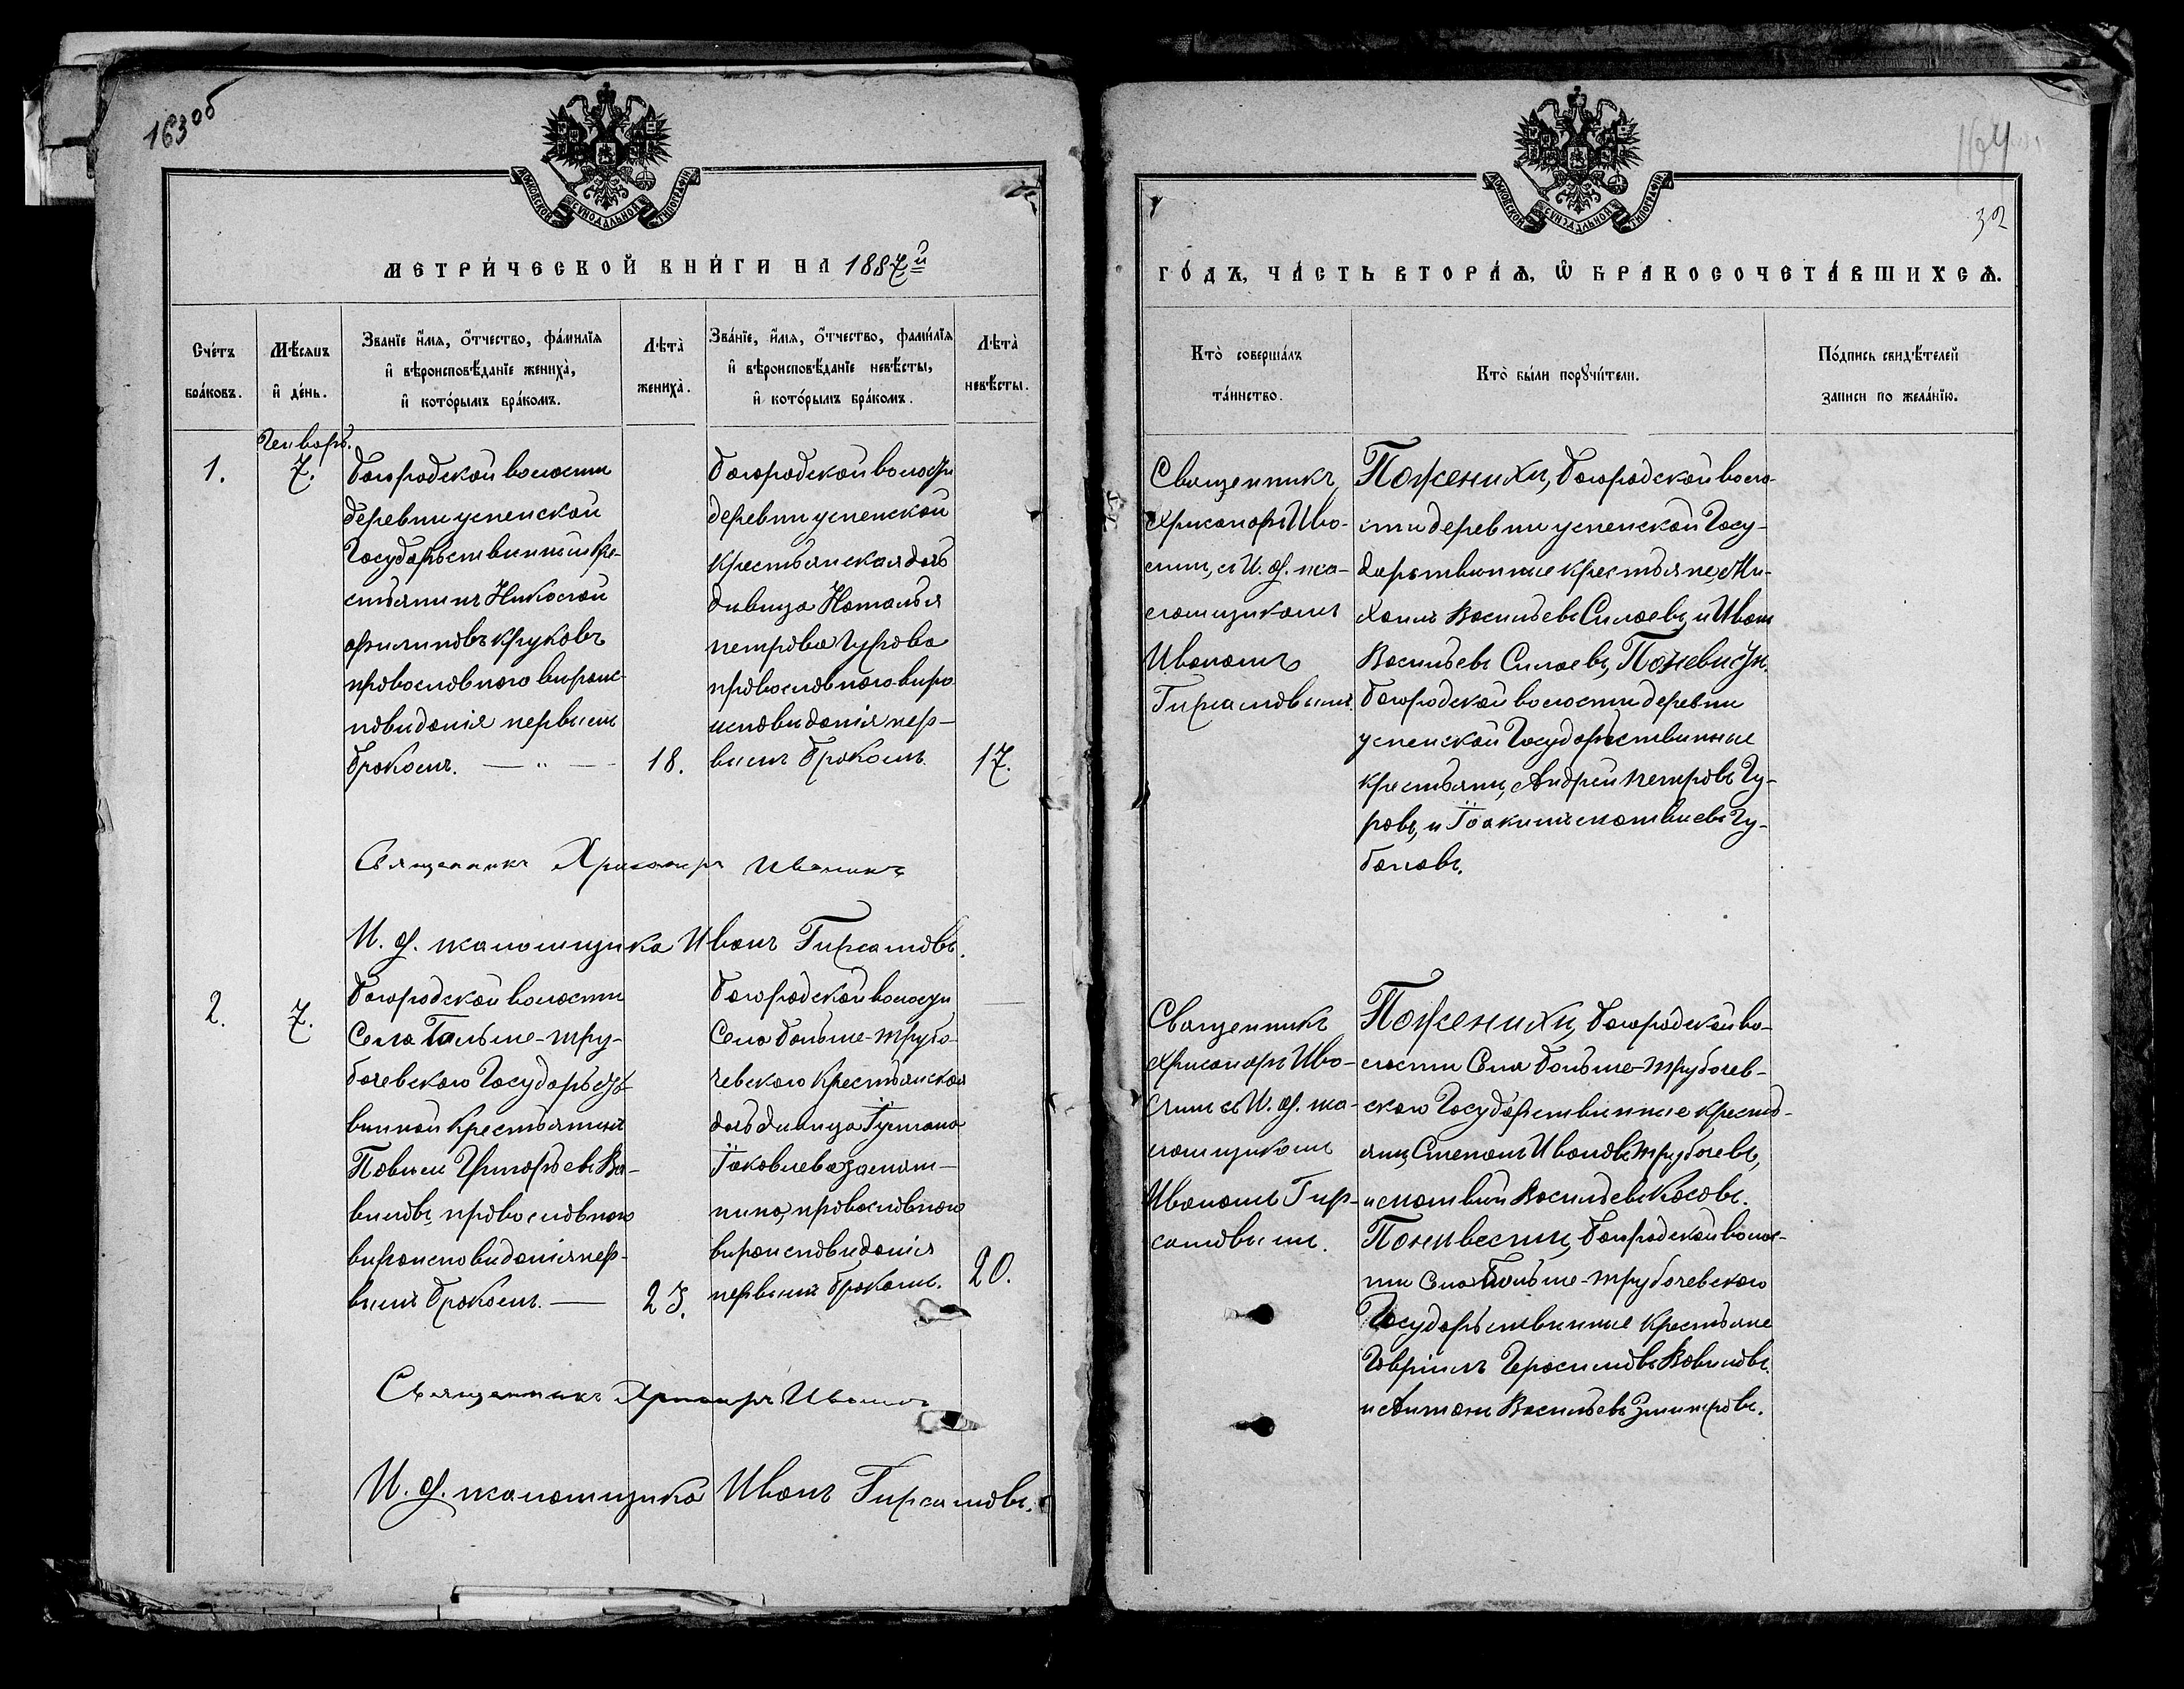 163об
МОСКОВСКОЙ СѴНОДАЛЬНОЙ ТИПОГРАФІИ
МЕТРИ́ЧЕСКОЙ КНИ́ГИ НА 1887й
Сче́тъ браковъ.
Мѣсяцъ и день.
Званїе имя, отчество, фамилїя
и вѣроисповѣданїе жениха,
и которымъ бракомъ.
Лѣта жениха.
Званїе, имя, отчество, фамилїя
и вѣроисповѣданїе невѣсты,
и которымъ бракомъ.
Лѣта невѣсты.
Генворь.
1.
7.
богородской волости
деревни успенской
Государьственный кре-
стьянинъ Николай
Филиповъ Круковъ
православнаго вироис-
повиданія первымъ
бракомъ. — „ —
18.
богородской волости
деревни успенской
крестьянская дочь
дивица Наталья
петрова Гурова
православнаго виро
исповиданія пер-
вымъ бракомъ.
17.
Священникъ Хрисанфъ Ивонинъ
И. ф. псаломщика Иванъ
2.
7.
богородской волости
Села Больше-тру-
бачевского Государьст-
венной Крестьянинъ
Павилъ Григорьевъ Ва-
виловъ, православнаго
вироисповиданія пер-
вымъ бракомъ. —
23.
богородской волости
Села больше-труба-
чевского крестьянская
дочь дивица Іустиана
Іаковлева
православнаго
вироисповиданія
первымъ бракомъ.
20.
Священникъ Хрисанфъ
И. ф. псаломщика Иванъ
164
32
МОСКОВСКОЙ СѴНОДАЛЬНОЙ ТИПОГРАФІИ
ГО́ДЪ, ЧА́СТЬ ВТОРА́Я, Ѡ БРАКОСОЧЕТА́ВШИХСЯ.
Кто совершалъ таинство.
Кто были поручители.
Подпись свидѣтелей
записи по желанїю.
Священникъ
Хрисанфъ Иво-
нинъ, съ И. ф. пса-
ломщикомъ
Иваномъ
По женихи, богородской воло-
сти деревни успенской Госу-
дарьтвенные крестьяне, Ми-
хаилъ Васильевъ Силаевъ, и Иванъ
Васильевъ Силаевъ, По невисти
богородской волости деревни
успенской Государьственные
крестьяни, Андрей петровъ Гу-
ровъ, и Іоакимъ матвиевъ Гу-
бановъ.
Священникъ
Хрисанфъ Иво-
нинъ съ И. ф. пса-
ломщикомъ
Иваномъ
По женихи, богородской во-
лости Села больше-трубачев-
ского Государственные кресть-
яни, Степанъ Ивановъ трубачевъ,
и матвий Васильевъ Косовъ.
По невести, богородской волос-
ти Села больше-трубачевского
Государьственные Крестьяне
Гавріилъ Герасимовъ Вавиловъ.
и Антонъ Васильевъ